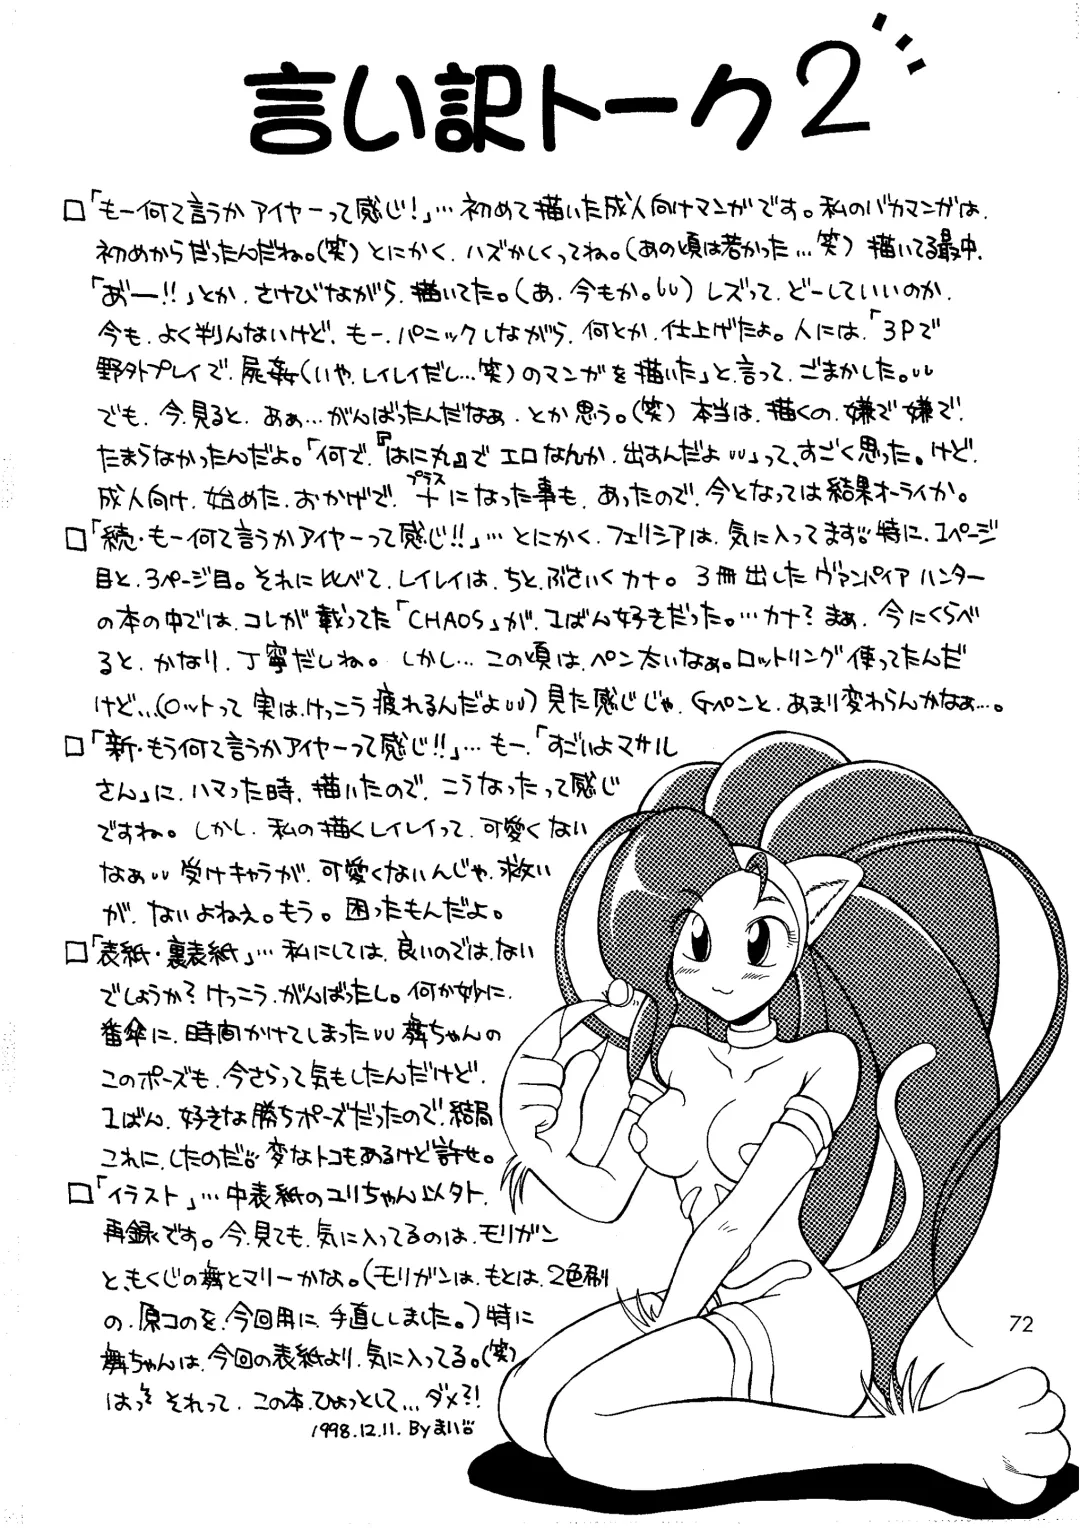 言い訳トーク2
□「もー何て言うかアイヤーって感じ!」…初めて描いた成人向けマンガです。私のバカマンガは、
初めからだったんだね。(笑)とにかく、ハズかしくってね。(あの頃は若かった…笑)描いてる最中、
「あ゛ー!!」とか、さけびながら、描いてた。(あ、今もか。UU)レズって、どーしていいのか、
今も、よく判んないけど、もー、パニックしながら、何とか、仕上げたよ。人には、「3Pで
野外プレイで、屍姦(いや、レイレイだし…笑)のマンガを描いた」と、言って、ごまかした。UU
でも、今、見ると、あぁ…がんばったんだなぁ、とか思う。(笑)本当は、描くの、嫌で嫌で、
たまらなかったんだよ。「何で、『はに丸』でエロなんか、出すんだよUU」って、すごく思った。けど、
成人向け、始めた、おかげで、+プラスになった事も、あったので、今となっては結果オーライか。
□「続・もー何て言うかアイヤーって感じ!!」…とにかく、フェリシアは、気に入ってます 特に、1ページ
目と、3ページ目。それに比べて、レイレイは、ちと、ぶさいくカナ。3冊出したヴァンパイアハンター
の本の中では、コレが載ってた「CHAOS」が、1ばん好きだった。…カナ?まぁ、今にくらべ
ると、かなり、丁寧だしね。しかし…この頃は、ペン太いなぁ。ロットリング使ってたんだ
けど…(ロットって実は、けっこう疲れるんだよUU)見た感じじゃ、Gペンと、あまり変わらんかなぁ…。
□「新・もう何て言うかアイヤーって感じ!!」…もー、「すごいよマサル
さん」に、ハマった時、描いたので、こうなったって感じ
ですね。しかし、私の描くレイレイって、可愛くない
なぁUU 受けキャラが、可愛くないんじゃ、救い
が、ないよねえ。もう。困ったもんだよ。
□「表紙・裏表紙」…私にしては、良いのでは、ない
でしょうか?けっこう、がんばったし。何か妙に、
番傘に、時間かけてしまったUU 舞ちゃんの
このポーズも、今さらって気もしたんだけど、
1ばん、好きな勝ちポーズだったので、結局
これに、したのだ 変なトコもあるけど許せ。
□「イラスト」…中表紙のユリちゃん以外、
再録です。今、見ても、気に入ってるのは、モリガン
と、もくじの舞とマリーかな。(モリガンは、もとは、2色刷
の、原コのを、今回用に、手直ししました。)特に
舞ちゃんは、今回の表紙より、気に入ってる。(笑)
はっ それって、この本、ひょっとして…ダメ?!
1998.12.11. By まい
72